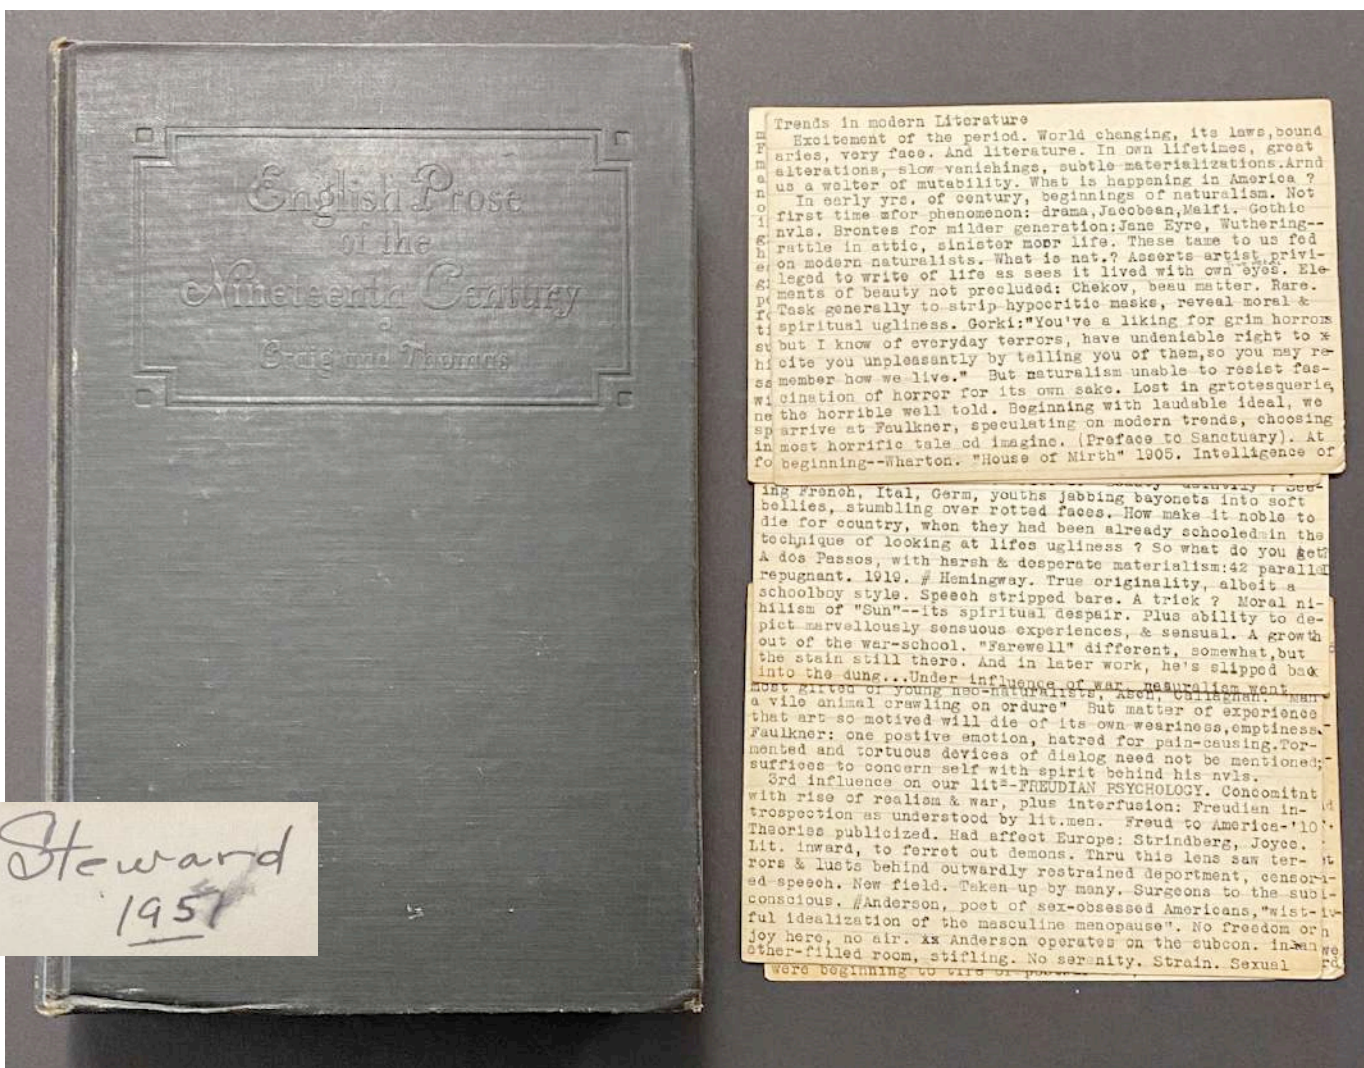 English Prose
of the
Nineteenth Century
Craig and Thomas
Steward
1951
Trends in modern Literature
Excitement of the period. World changing, its laws,bound
aries, very face. And literature. In own lifetimes, great
alterations, slow vanishings, subtle materializations.Arnd
us a welter of mutability. What is happening in America ?
In early yrs. of century, beginnings of naturalism. Not
first time mfor phenomenon: drama,Jacobean,Malfi. Gothic
nvls. Brontes for milder generation:Jane Eyre, Wuthering--
rattle in attic, sinister moor life. These tame to us fed
on modern naturalists. What is nat.? Asserts artist privi-
leged to write of life as sees it lived with own eyes. Ele-
ments of beauty not precluded: Chekov, beau matter. Rare.
Task generally to strip hypocritic masks, reveal moral &
spiritual ugliness. Gorki:"You've a liking for grim horrors
but I know of everyday terrors, have undeniable right to x
cite you unpleasantly by telling you of them,so you may re-
member how we live." But naturalism unable to resist fas-
cination of horror for its own sake. Lost in grtotesquerie,
the horrible well told. Beginning with laudable ideal, we
arrive at Faulkner, speculating on modern trends, choosing
most horrific tale cd imagine. (Preface to Sanctuary). At
beginning--Wharton. "House of Mirth" 1905. Intelligence of
ing French, Ital, Germ, youths jabbing bayonets into soft
bellies, stumbling over rotted faces. How make it noble to
die for country, when they had been already schooled in the
technique of looking at lifes ugliness ? So what do you get?
A dos Passos, with harsh & desperate materialism:42 parallel
repugnant. 1919. # Hemingway. True originality, albeit a
schoolboy style. Speech stripped bare. A trick ? Moral ni-
hilism of "Sun"--its spiritual despair. Plus ability to de-
pict marvellously sensuous experiences, & sensual. A growth
out of the war-school. "Farewell" different, somewhat,but
the stain still there. And in later work, he's slipped back
into the dung...Under influence of war, naturalism went
most gifted of young neo-naturalists, Asch, Callaghan. "Man
a vile animal crawling on ordure" But matter of experience
that art so motived will die of its own weariness,emptiness.
Faulkner: one postive emotion, hatred for pain-causing.Tor-
mented and tortuous devices of dialog need not be mentioned;
suffices to concern self with spirit behind his nvls.
3rd influence on our lit--FREUDIAN PSYCHOLOGY. Concomitnt
with rise of realism & war, plus interfusion: Freudian in-
trospection as understood by lit.men. Freud to America-'10
Theories publicized. Had affect Europe: Strindberg, Joyce.
Lit. inward, to ferret out demons. Thru this lens saw ter-
rors & lusts behind outwardly restrained deportment, censor-
ed speech. New field. Taken up by many. Surgeons to the sub-
conscious. #Anderson, poet of sex-obsessed Americans,"wist-
ful idealization of the masculine menopause". No freedom or
joy here, no air. xx Anderson operates on the subcon. in an
ether-filled room, stifling. No serenity. Strain. Sexual
were beginning to tire of